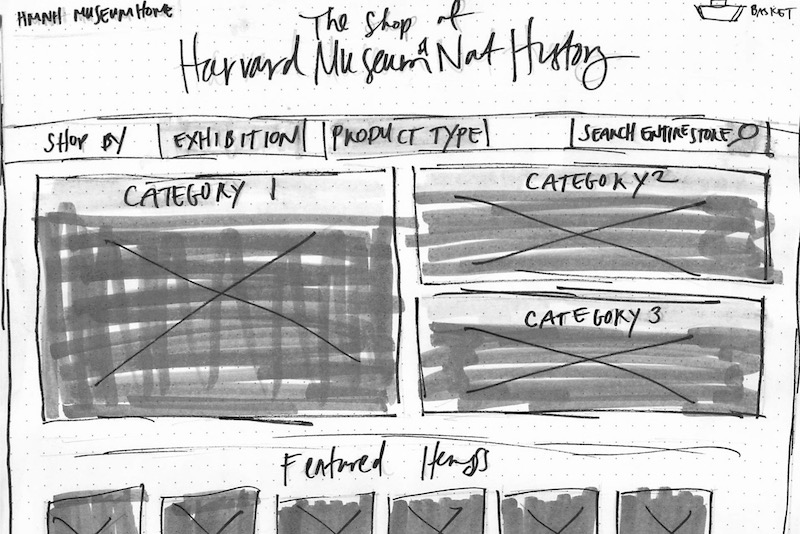 HMNH MUSEUM HOME
BASKET
The Shop at
Harvard Museum of Nat History
SHOP BY
EXHIBITION
PRODUCT TYPE
SEARCH ENTIRE STORE
CATEGORY 1
CATEGORY 2
CATEGORY 3
Featured Items